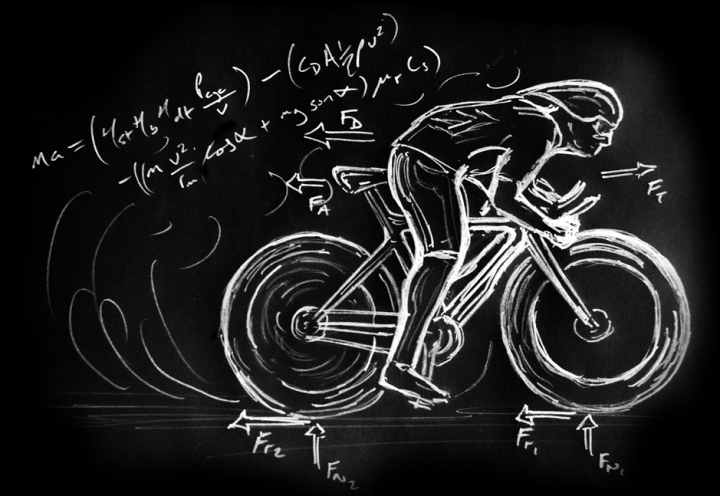 ma = (η_st η_b η_dt P_cyc/v) − (C_D A ½ ρ v²)
−((m v²/r_m cosα + mg sinα) μ_r C_s)
F_D
F_A
F_T
F_r2
F_N2
F_r1
F_N1